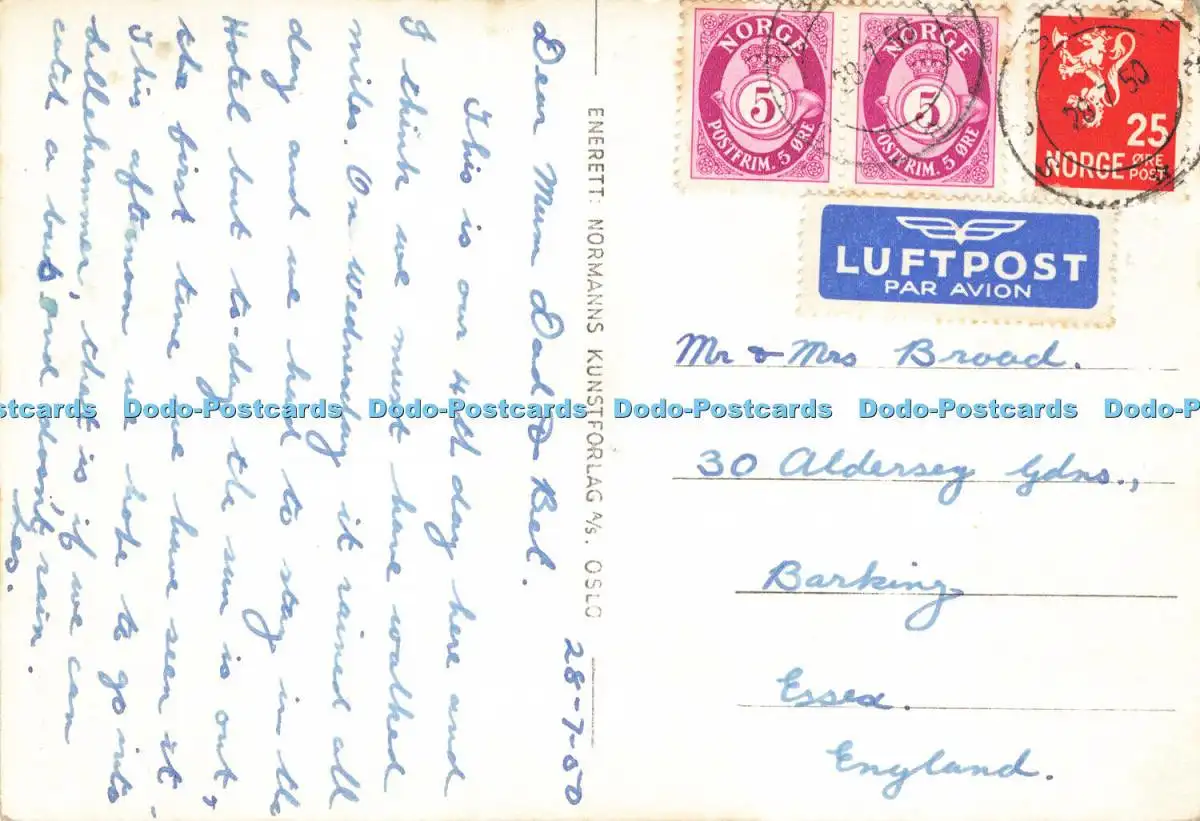 28-7-50
Dear Mum Dad & Bel.
This is our 4th day here and
I think we must have walked
miles. On Wednesday it rained all
day and we had to stay in the
Hotel but to-day the sun is out,
the first time we have seen it.
This afternoon we hope to go into
Lillehammer, that is, if we can
catch a bus and don't rain.
Les.
ENERETT: NORMANNS KUNSTFORLAG A/S. OSLO
NORGE
5
POSTFRIM. 5 ØRE
NORGE
5
POSTFRIM. 5 ØRE
28.7.50
25
NORGE ØRE POST
28.7.50
LUFTPOST
PAR AVION
Mr & Mrs Broad.
30 Aldersey Gdns.,
Barking
Essex.
England.
Dodo-Postcards Dodo-Postcards Dodo-Postcards Dodo-Postcards